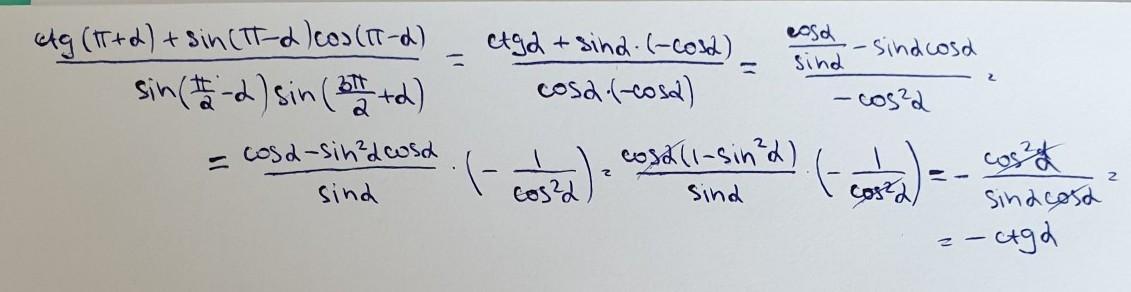 (ctg(π+α) + sin(π-α)cos(π-α)) / (sin(π/2 - α) sin(3π/2 + α)) = (ctgα + sinα·(-cosα)) / (cosα·(-cosα)) = (cosα/sinα - sinαcosα) / (-cos²α) =
= (cosα - sin²αcosα) / sinα · (- 1/cos²α) = (cosα(1 - sin²α)) / sinα · (- 1/cos²α) = - cos²α / (sinαcosα) =
= - ctgα